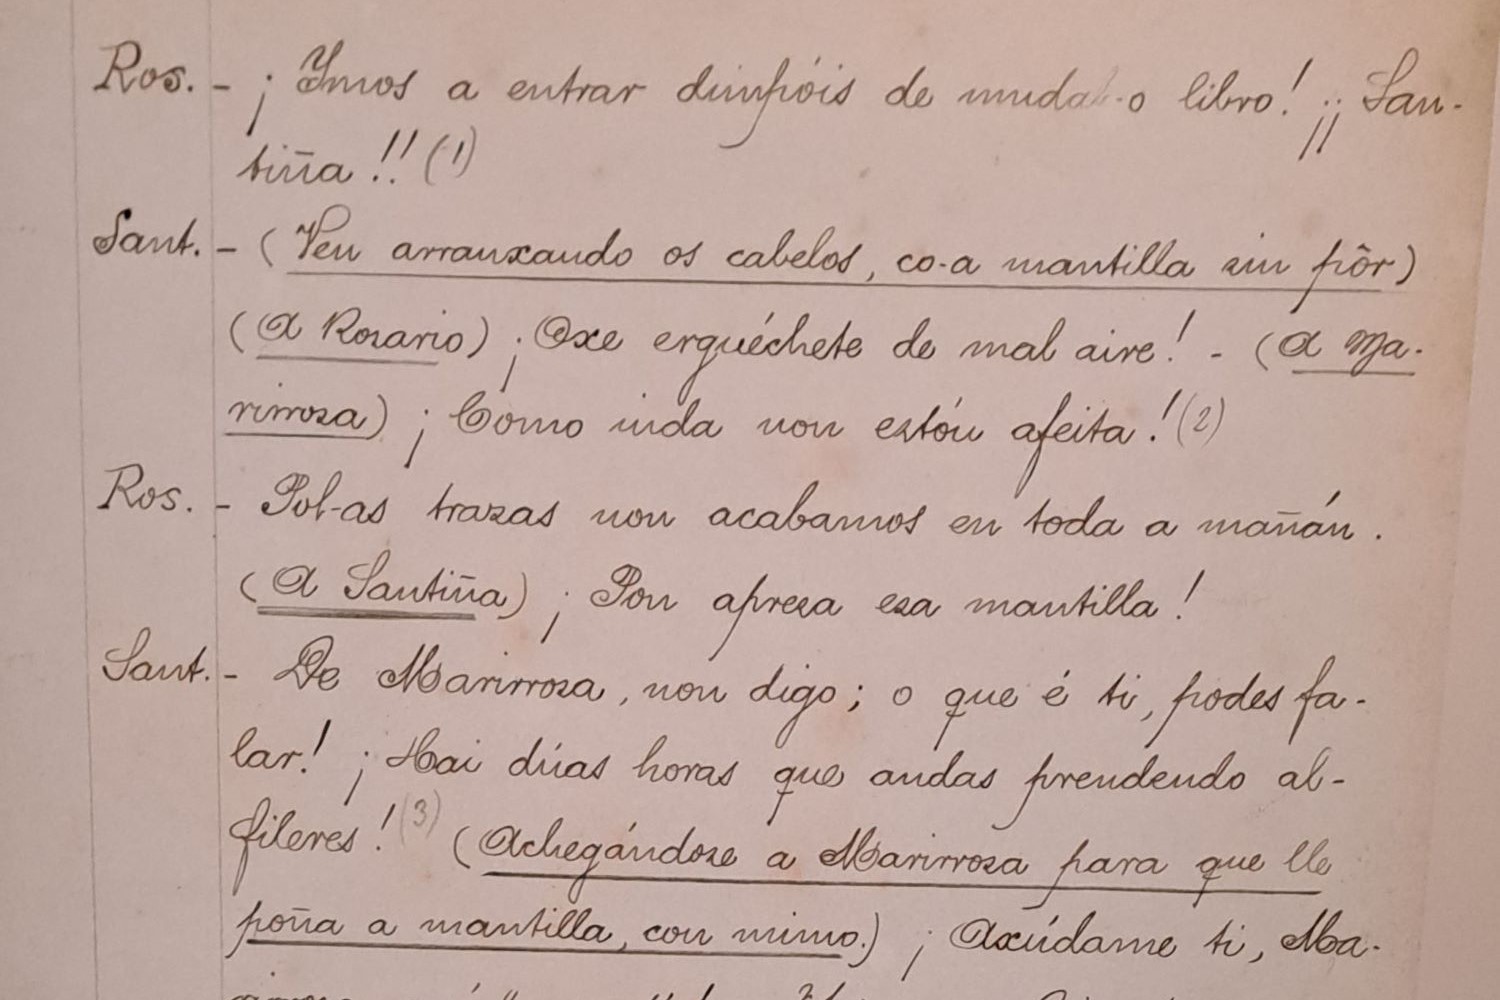 Ros. - ¡Imos a entrar dimpóis de mudal-o libro! ¡¡San-
tiña!! (1)
Sant. - (Ven arranxando os cabelos, co-a mantilla sin pôr)
(A Rosario) ¡Oxe erguéchete de mal aire! - (A Ma-
rirrosa) ¡Como inda non estóu afeita! (2)
Ros. - Pol-as trazas non acabamos en toda a mañán.
(A Santiña) ¡Pon apresa esa mantilla!
Sant. - De Marirrosa, non digo; o que é ti, podes fa-
lar! ¡Hai dúas horas que andas prendendo al-
fileres! (3) (Achegándose a Marirrosa para que lle
poña a mantilla, con mimo.) ¡Axúdame ti, Ma-